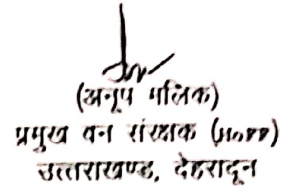 (अनूप मलिक)
प्रमुख वन संरक्षक (HOFF)
उत्तराखण्ड, देहरादून